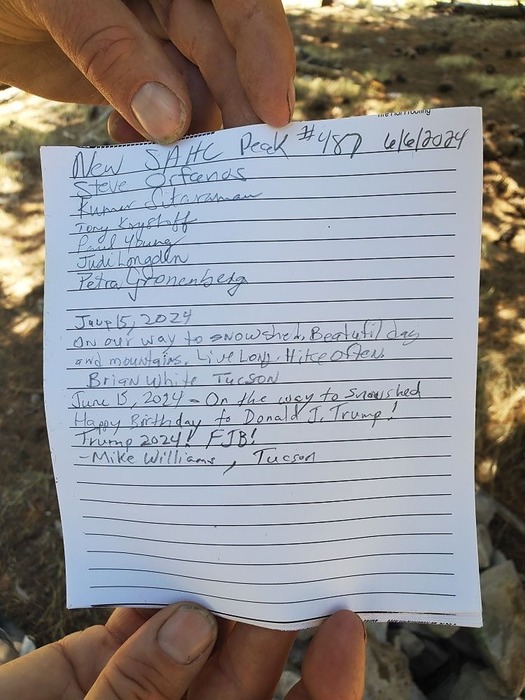 New SAHC Peak #487 6/6/2024
Steve Orfanos
Kumar Sitaraman
Tony Krystoff
Paul Young
Judi Longden
Petra Gronenberg
June 15, 2024
On our way to snowshed. Beatutil day
and mountains. Live Long. Hike Often.
Brian White Tucson
June 15, 2024 - On the way to Snowshed
Happy Birthday to Donald J. Trump!
Trump 2024! FJB!
-Mike Williams, Tucson